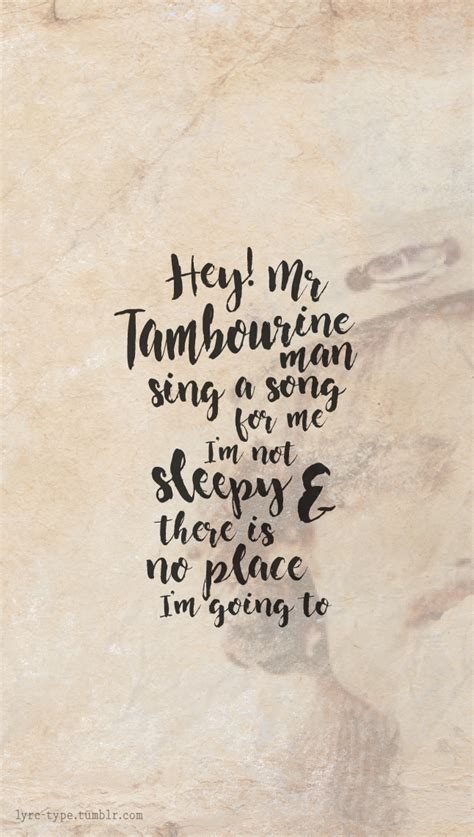 Hey! Mr
Tambourine
man
sing a song
for me
I'm not
sleepy &
there is
no place
I'm going to
lyrc-type.tumblr.com